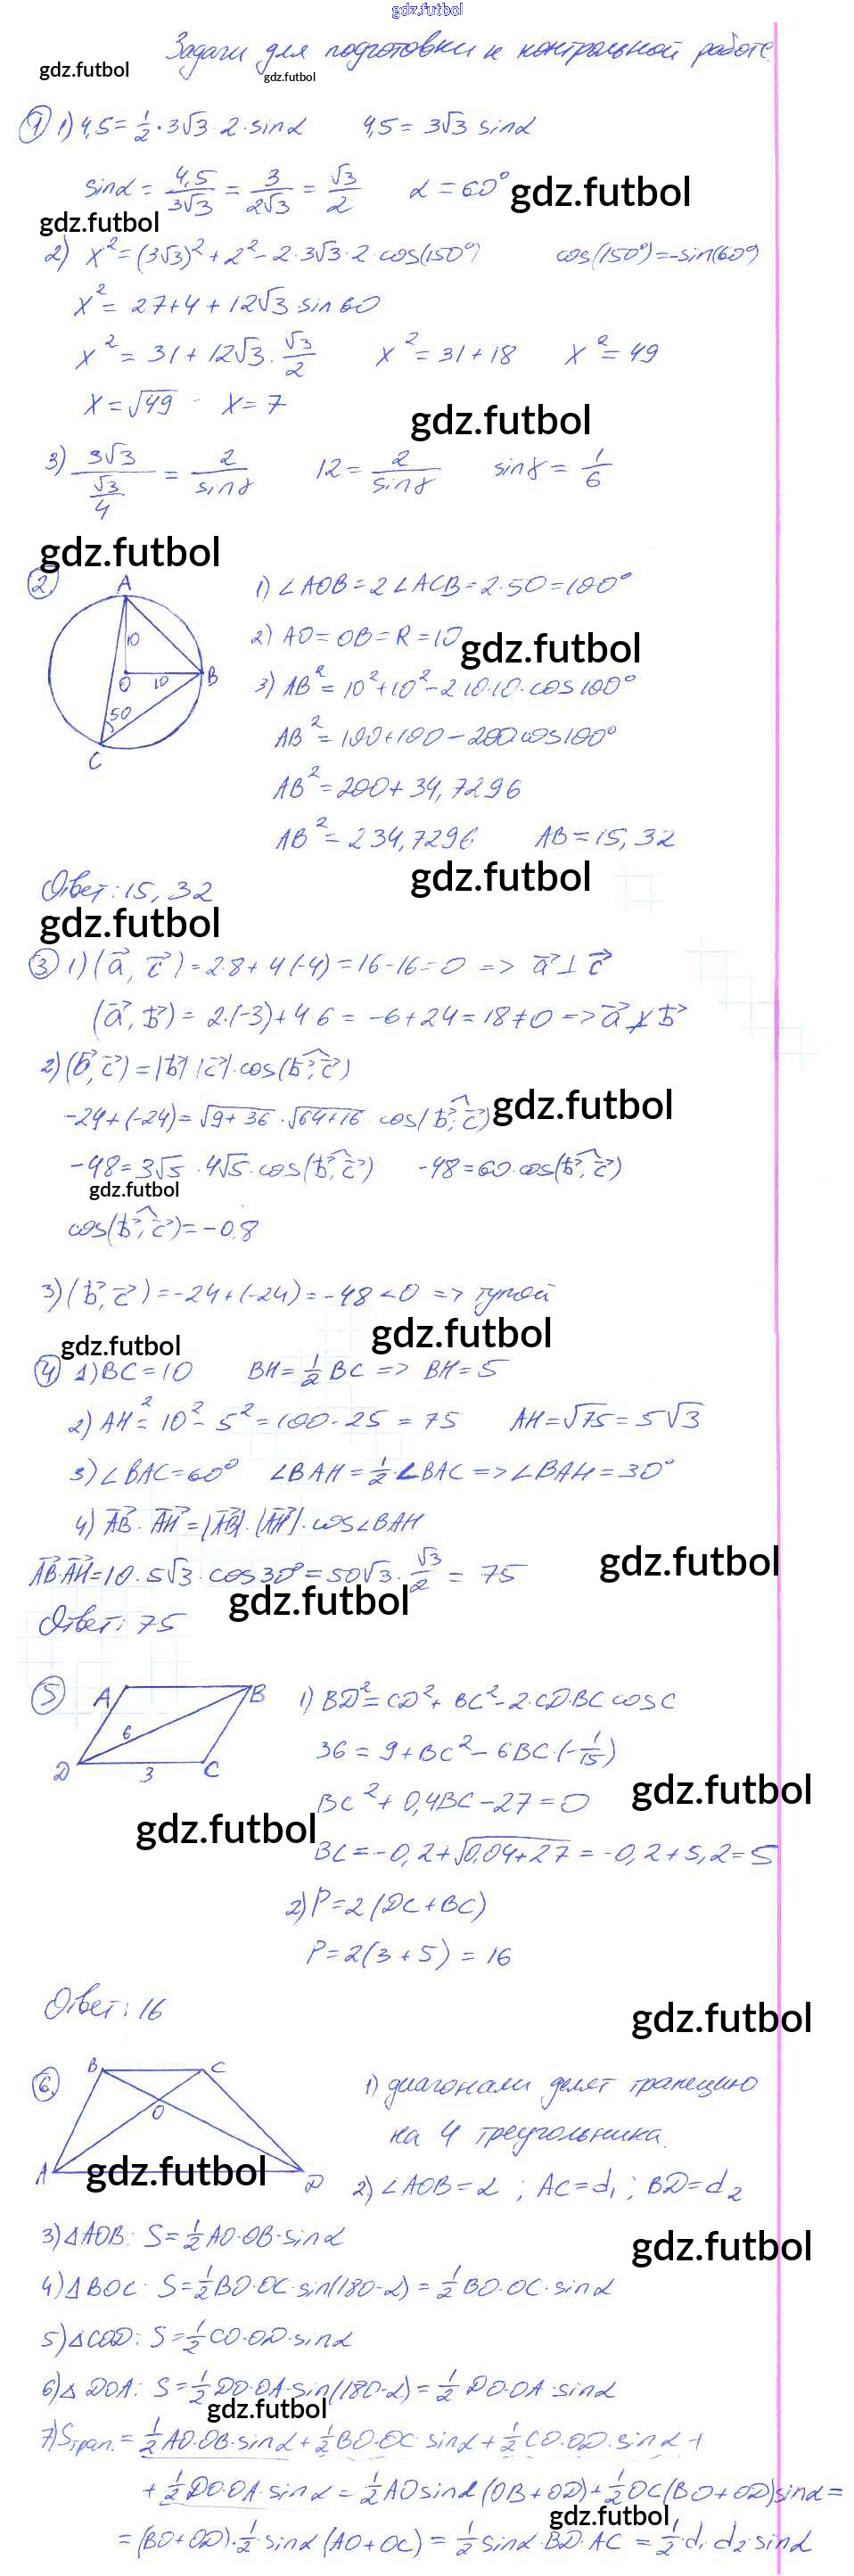 gdz.futbol
Задачи для подготовки к контрольной работе.
gdz.futbol
gdz.futbol
1 1) 4,5 = 1/2 · 3√3 · 2 · sinα 4,5 = 3√3 sinα
sinα = 4,5/3√3 = 3/2√3 = √3/2 α = 60°
gdz.futbol
gdz.futbol
2) x² = (3√3)² + 2² - 2 · 3√3 · 2 · cos(150°) cos(150°) = -sin(60°)
x² = 27 + 4 + 12√3 · sin 60
x² = 31 + 12√3 · √3/2 x² = 31 + 18 x² = 49
x = √49 x = 7
gdz.futbol
3) 3√3/(√3/4) = 2/sinγ 12 = 2/sinγ sinγ = 1/6
gdz.futbol
2 1) ∠AOB = 2∠ACB = 2 · 50 = 100°
2) AO = OB = R = 10
gdz.futbol
3) AB² = 10² + 10² - 2 · 10 · 10 · cos 100°
AB² = 100 + 100 - 200cos100°
AB² = 200 + 34,7296
AB² = 234,7296 AB = 15,32
A
10
O 10 B
50
C
gdz.futbol
Ответ: 15,32
gdz.futbol
3 1) (a⃗, c⃗) = 2·8 + 4(-4) = 16 - 16 = 0 => a⃗ ⊥ c⃗
(a⃗, b⃗) = 2·(-3) + 4·6 = -6 + 24 = 18 ≠ 0 => a⃗ ⊥̸ b⃗
2) (b⃗, c⃗) = |b⃗| |c⃗| · cos(b⃗, c⃗)
-24 + (-24) = √9+36 · √64+16 · cos(b⃗, c⃗)
gdz.futbol
-48 = 3√5 · 4√5 · cos(b⃗, c⃗) -48 = 60 · cos(b⃗, c⃗)
gdz.futbol
cos(b⃗, c⃗) = -0,8
3) (b⃗, c⃗) = -24 + (-24) = -48 < 0 => тупой
gdz.futbol
gdz.futbol
4 1) BC = 10 BH = 1/2 BC => BH = 5
2) AH² = 10² - 5² = 100 - 25 = 75 AH = √75 = 5√3
3) ∠BAC = 60° ∠BAH = 1/2 ∠BAC => ∠BAH = 30°
4) AB⃗ · AH⃗ = |AB⃗| · |AH⃗| · cos∠BAH
AB⃗ · AH⃗ = 10 · 5√3 · cos30° = 50√3 · √3/2 = 75
gdz.futbol
gdz.futbol
Ответ: 75
5 1) BD² = CD² + BC² - 2·CD·BC·cosC
36 = 9 + BC² - 6BC·(-1/15)
BC² + 0,4BC - 27 = 0
gdz.futbol
gdz.futbol
BC = -0,2 + √0,04+27 = -0,2 + 5,2 = 5
2) P = 2(DC + BC)
P = 2(3 + 5) = 16
A B
6
D 3 C
Ответ: 16
gdz.futbol
6 1) диагонали делят трапецию
на 4 треугольника.
2) ∠AOB = α ; AC = d₁ ; BD = d₂
B C
O
A D
gdz.futbol
3) ΔAOB: S = 1/2 AO·OB·sinα
gdz.futbol
4) ΔBOC: S = 1/2 BO·OC·sin(180-α) = 1/2 BO·OC·sinα
5) ΔCOD: S = 1/2 CO·OD·sinα
6) ΔDOA: S = 1/2 DO·OA·sin(180-α) = 1/2 DO·OA·sinα
gdz.futbol
7) Sтрап. = 1/2 AO·OB·sinα + 1/2 BO·OC·sinα + 1/2 CO·OD·sinα +
+ 1/2 DO·OA·sinα = 1/2 AO sinα (OB + OD) + 1/2 OC(BO + OD) sinα =
gdz.futbol
= (BO + OD)·1/2·sinα (AO + OC) = 1/2 sinα·BD·AC = 1/2·d₁ d₂·sinα